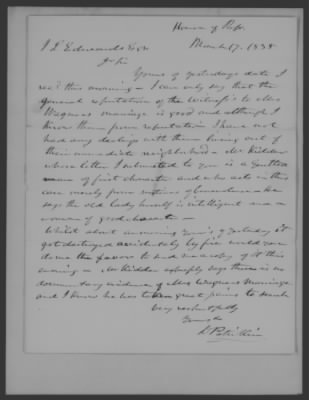 House of Rep.
March 17. 1838
J L Edwards Esqr
Dr Sir
Yours of yesterdays date I
recd this morning — I can only say that the
general reputation of the Witnesses to Mrs
Wagners marriage is good and although I
know them from reputation I have not
had any dealings with them living out of
their immediate neighborhood — Mr Kidder
whose letter I submitted to you is a gentle
man of first character and who acts in this
case merely from motives of benevolence — he
says the old lady herself is intelligent and a
woman of good character —
Whilst about answering yours of yesterday it
got destroyed accidentally by fire would you
do me the favor to send me a copy of it this
evening — Mr Kidder says there is no
documentary evidence of Mrs Wagners Marriage
and I know he has taken great pains to search
Very respectfully
Yours &c